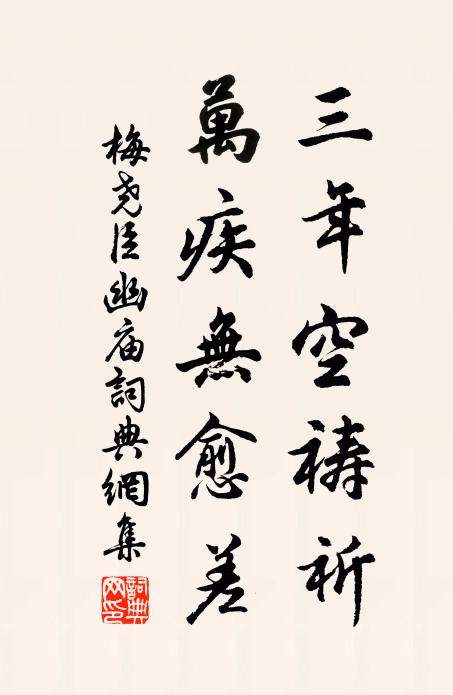 三年空祷祈
萬疾無愈差
梅尧臣幽庙詞典網集
詞典网印